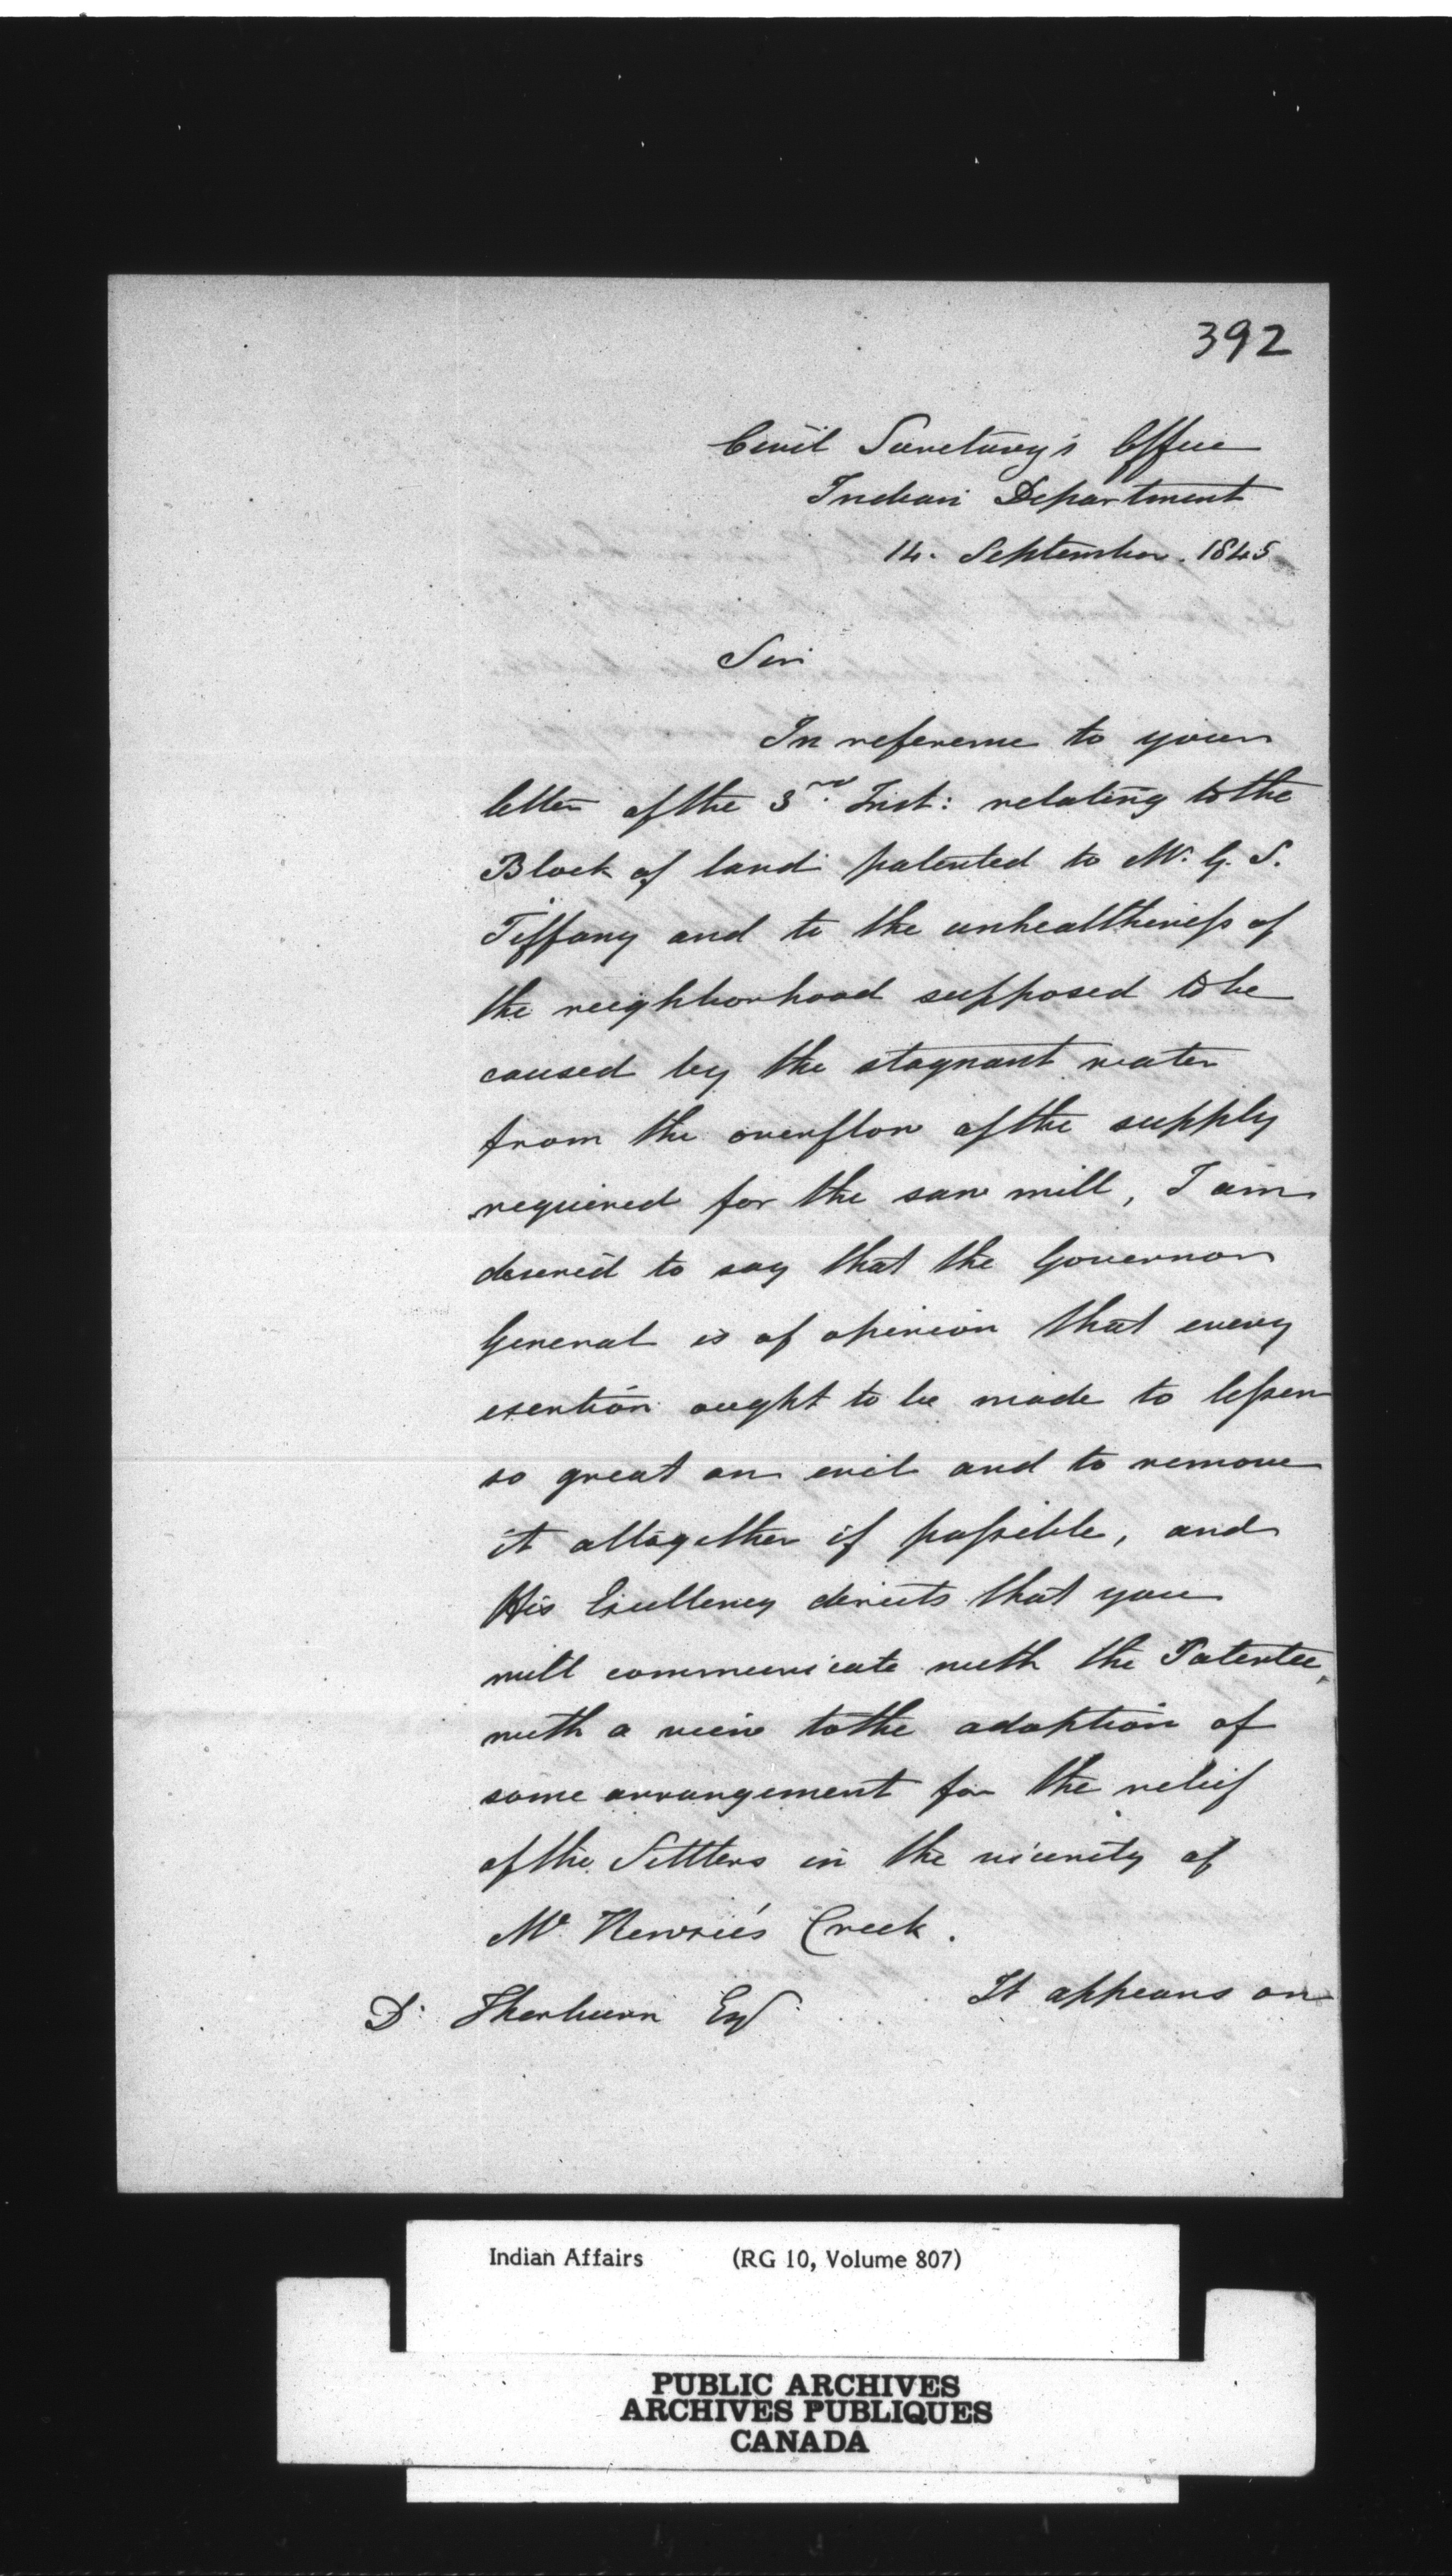 392
Civil Secretary's Office
Indian Department
14. September. 1845
Sir
In reference to your
letter of the 3rd. Inst: relating to the
Block of land patented to Mr. G. S.
Tiffany and to the unhealthiness of
the neighborhood supposed to be
caused by the stagnant water
from the overflow of the supply
required for the saw mill, I am
desired to say that the Governor
General is of opinion that every
exertion ought to be made to lessen
so great an evil and to remove
it altogether if possible, and
His Excellency directs that you
will communicate with the Patentee,
with a view to the adoption of
some arrangement for the relief
of the Settlers in the vicinity of
Mc Kenzie's Creek.
It appears on
D. Thorburn Esq
Indian Affairs (RG 10, Volume 807)
PUBLIC ARCHIVES
ARCHIVES PUBLIQUES
CANADA